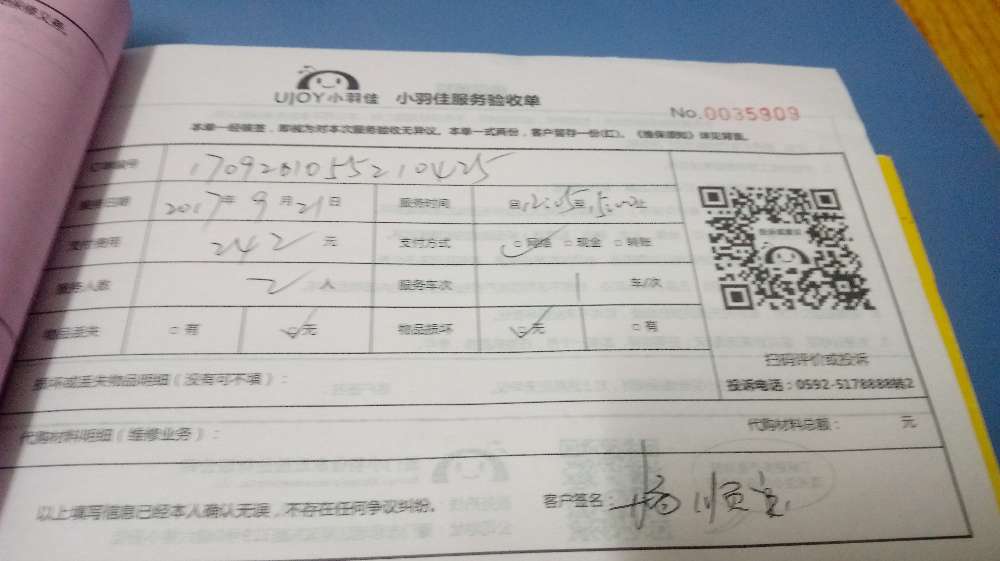 UJOY小羽佳 小羽佳服务验收单
No.0035909
本单一经签, 即视为对本次服务验收无异议。本单一式两份，客户留存一份(红)。《维保须知》详见背面。
订单编号 170921055210425
服务日期 2017年9月21日 服务时间 自12:05至15:00止
支付费用 242元 支付方式 □网络 □现金 □转账
服务人数 2人 服务车次 1车/次
物品丢失 □有 □无 物品损坏 □无 □有
扫码评价或投诉
损坏或丢失物品明细（没有可不填）：
投诉电话：0592-5178888转2
代购材料明细（维修业务）：
代购材料总额： 元
以上填写信息已经本人确认无误，不存在任何争议纠纷。 客户签名：杨顺